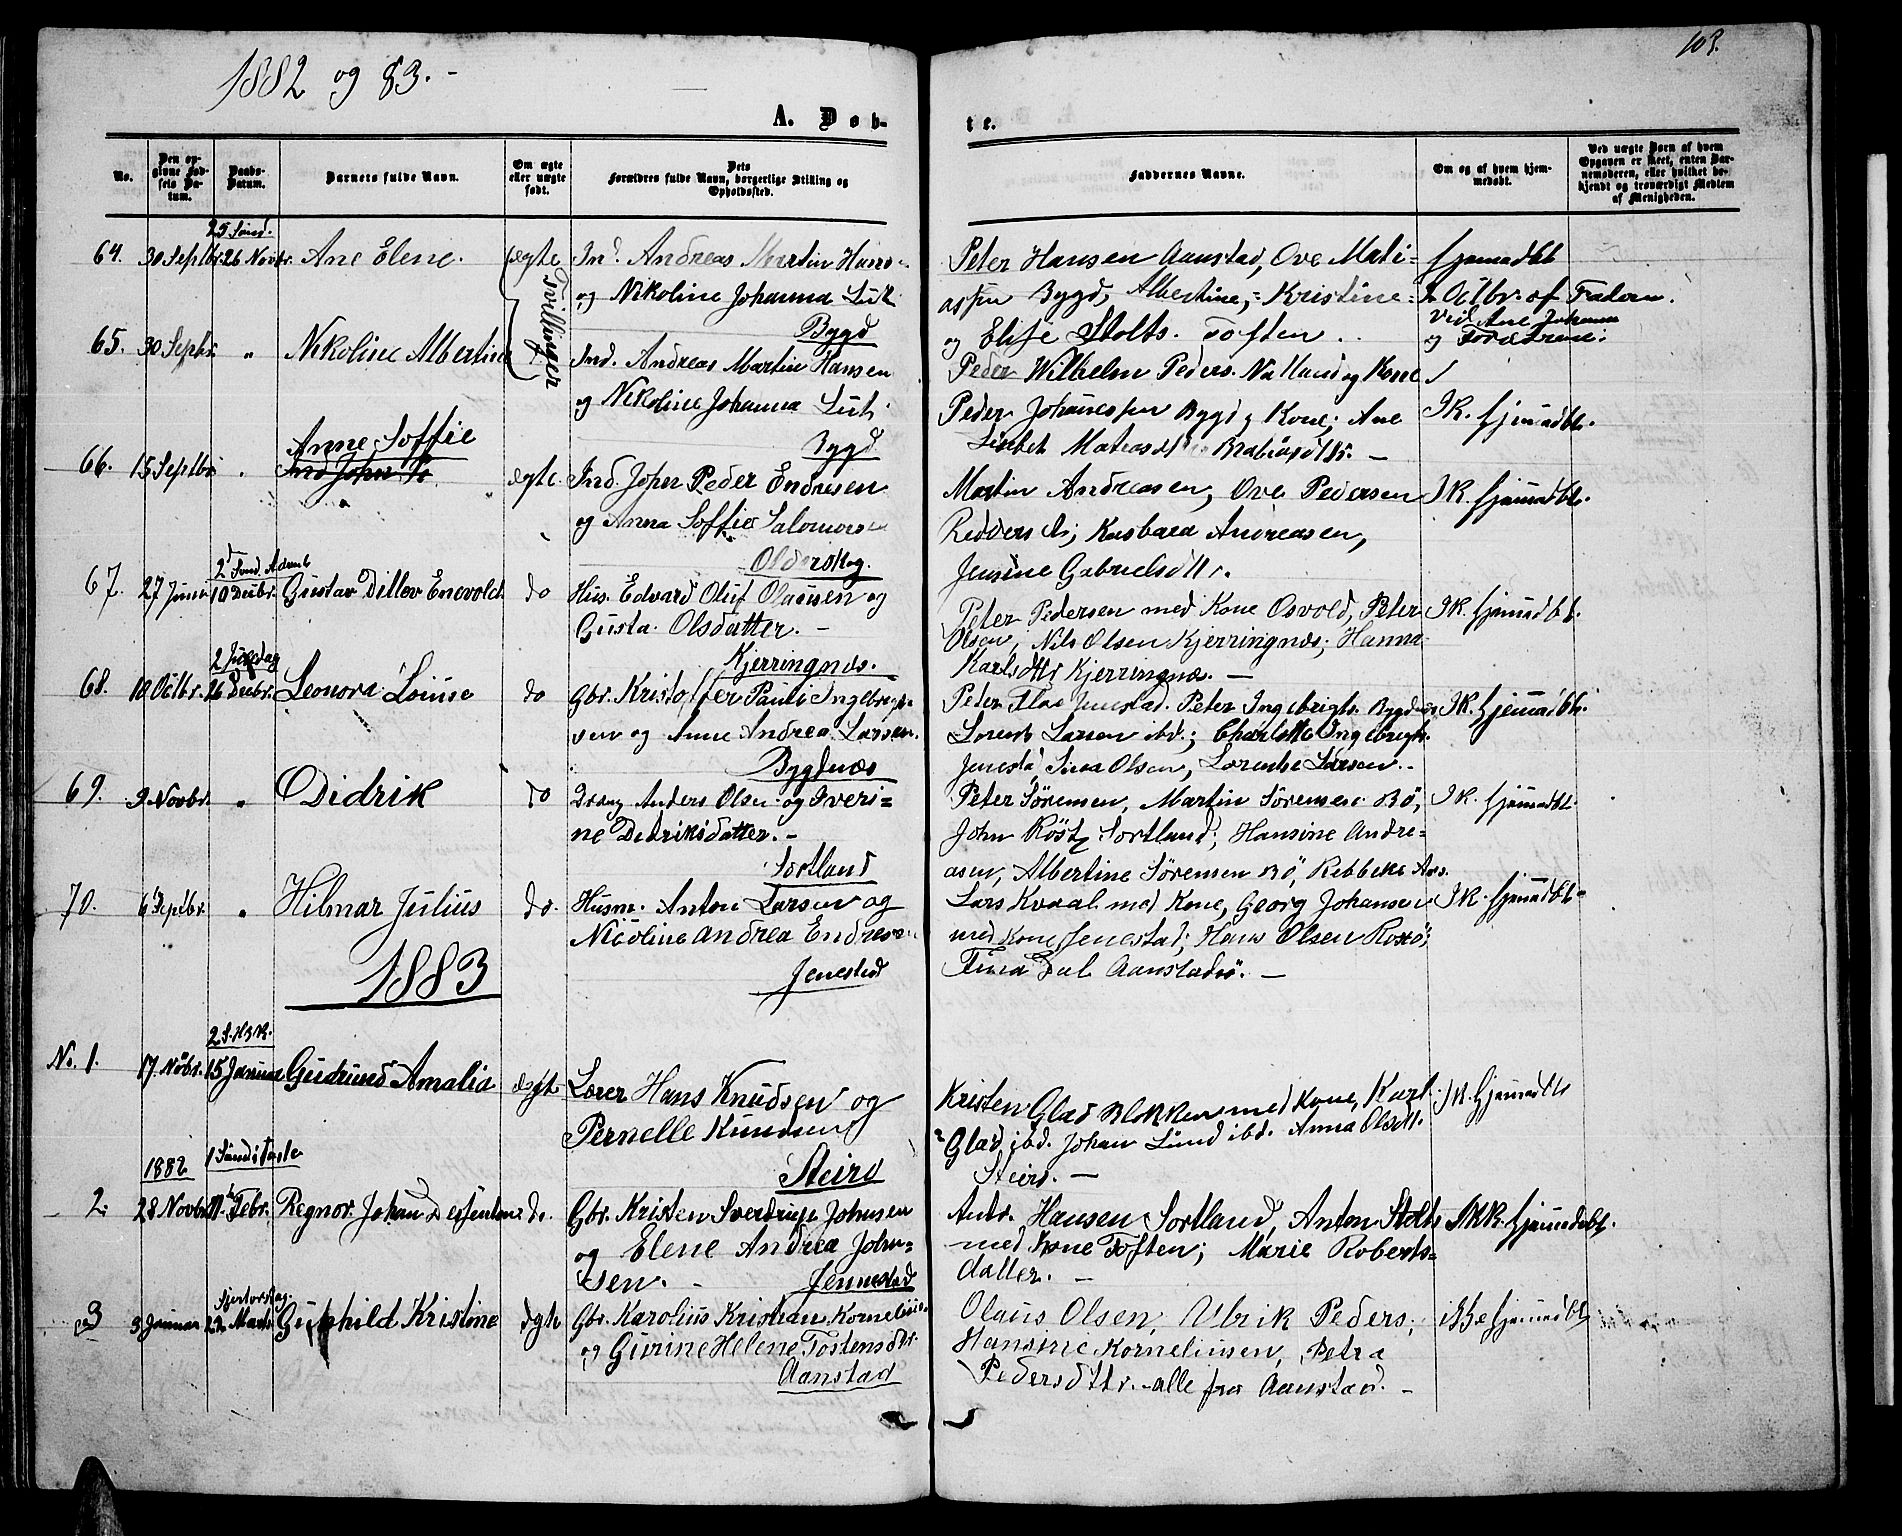 1882 og 83.-
103.
A. Døb-
te.
No.
Den opgivne Fødsels Datum.
Daabs-Datum.
Barnets fulde Navn.
Om ægte eller uægte født.
Dets Forældres fulde Navn, borgerlige Stilling og Opholdssted.
Faddernes Navne.
Om og af hvem hjemmedøbt.
Ved uægte Børn af hvem Opgaven er skeet, enten Barnemoderen, eller hvilket bekjendt og troværdigt Medlem af Menigheden.
25 Sønd.
64. 30 Septbr. 26 Novbr. Ane Elene. ægte Ind. Andreas Martin Hans-
og Nikoline Johanna
Bygd
Tvillinger
Peter Hansen Aanstad, Ove Mati-
Bygd, Albertine, Kristine
og Elise Stolts. Toften.
hjemmedbt
Octbr. af Faderen.
ved Ane Johanna
og Forældrene.
65. 30 Septr. " Nikoline Albertine Ind. Andreas Martin Hansen
og Nikoline Johanna
Bygd
Peder Wilhelm Peders. og Kone
Peder Johanessen Bygd, Kone; Ane
Lisbet
IK. hjemmedbt.
Anne Soffie
66. 15 Septbr. " ægte. Ind. Joher Peder Endresen
og Anna Soffie Salomons
Olderskog.
Martin Andreasen, Ove Pedersen
Andreasen,
Jensine Gabrielsdttr.
IK. hjemmedbt.
2d Sønd. Advent
67. 27 Juni 10 Decbr. Gustav Ditlev Enevold do Hus. Edvard Oluf Olausen og
Gusta Olsdatter. -
Kjerringnæs.
Peter Pedersen med Kone Osvold, Peter
Olsen, Nils Olsen Kjerringnæs; Hanna
Karlsdttr Kjerringnæs. -
IK. hjemmedbt.
2 Juledag
68. 10 Octbr. 26 Decbr. Leonora Louise do Gbr. Kristoffer Pauli Ingebrigt-
sen og Anne Andrea Larsen.
Bygdnæs
Peter Jenestad. Peter Ingebrigts. Bygdnæs
Lorents Larsen ibd.; Charlotte Ingebrigts.
Jenestd, Sina Olsen, Larsen.
IK. hjemmedbt.
69. 9 Novbr. " Didrik do Dreng Anders Olsen og Iveri-
ne Didriksdatter. -
Sortland
Peter Sörensen, Martin Sörensen Bö,
John Röst Sortland, Hansine Andre-
asen, Albertine Sörensen Bö, Rebbeke
IK. hjemmedbt.
70. 6 Septbr. " Hilmar Julius do. Husm. Anton Larsen og
Nicoline Andrea Endres
Jenestad
Lars Kvaal med Kone, Georg Johansen
med Kone Jenestad; Hans Olsen
Dal Aanstad
IK. hjemmedbt.
1883
2 S. H3K.
No. 1. 17 Növbr. 15 Januar Gudrund Amalia ægte Lærer Hans Knudsen og
Pernelle Knudsen
Steirö
Kristen Glad Blokken med Kone, Karl
Glad ibd. Johan Lund ibd. Anna Olsdt.
Steirö. -
IK. hjemmedbt
1882
1 Sönd i Faste
2. 28 Novbr 11 Febr. Regnor Johan do. Gbr. Kristen Sverdrup Johnsen
og Elene Andrea John-
sen. - Jennestad
Andr. Hansen Sortland, Anton Stolts
med Kone Toften; Marie Roberts-
datter. -
IKK. hjemmedbt.
Skjertorsdag.
3 3 Januar 22 Marts Gunhild Kristine ægte Gbr. Karolius Kristian Kornelius.
og Gurine Helene Tostensdtr
Aanstad
Olaus Olsen, Ulrik Peders.
Hansine Korneliusen, Petra
Pedersdttr. - alle fra Aanstad. -
ikke hjemmedbt